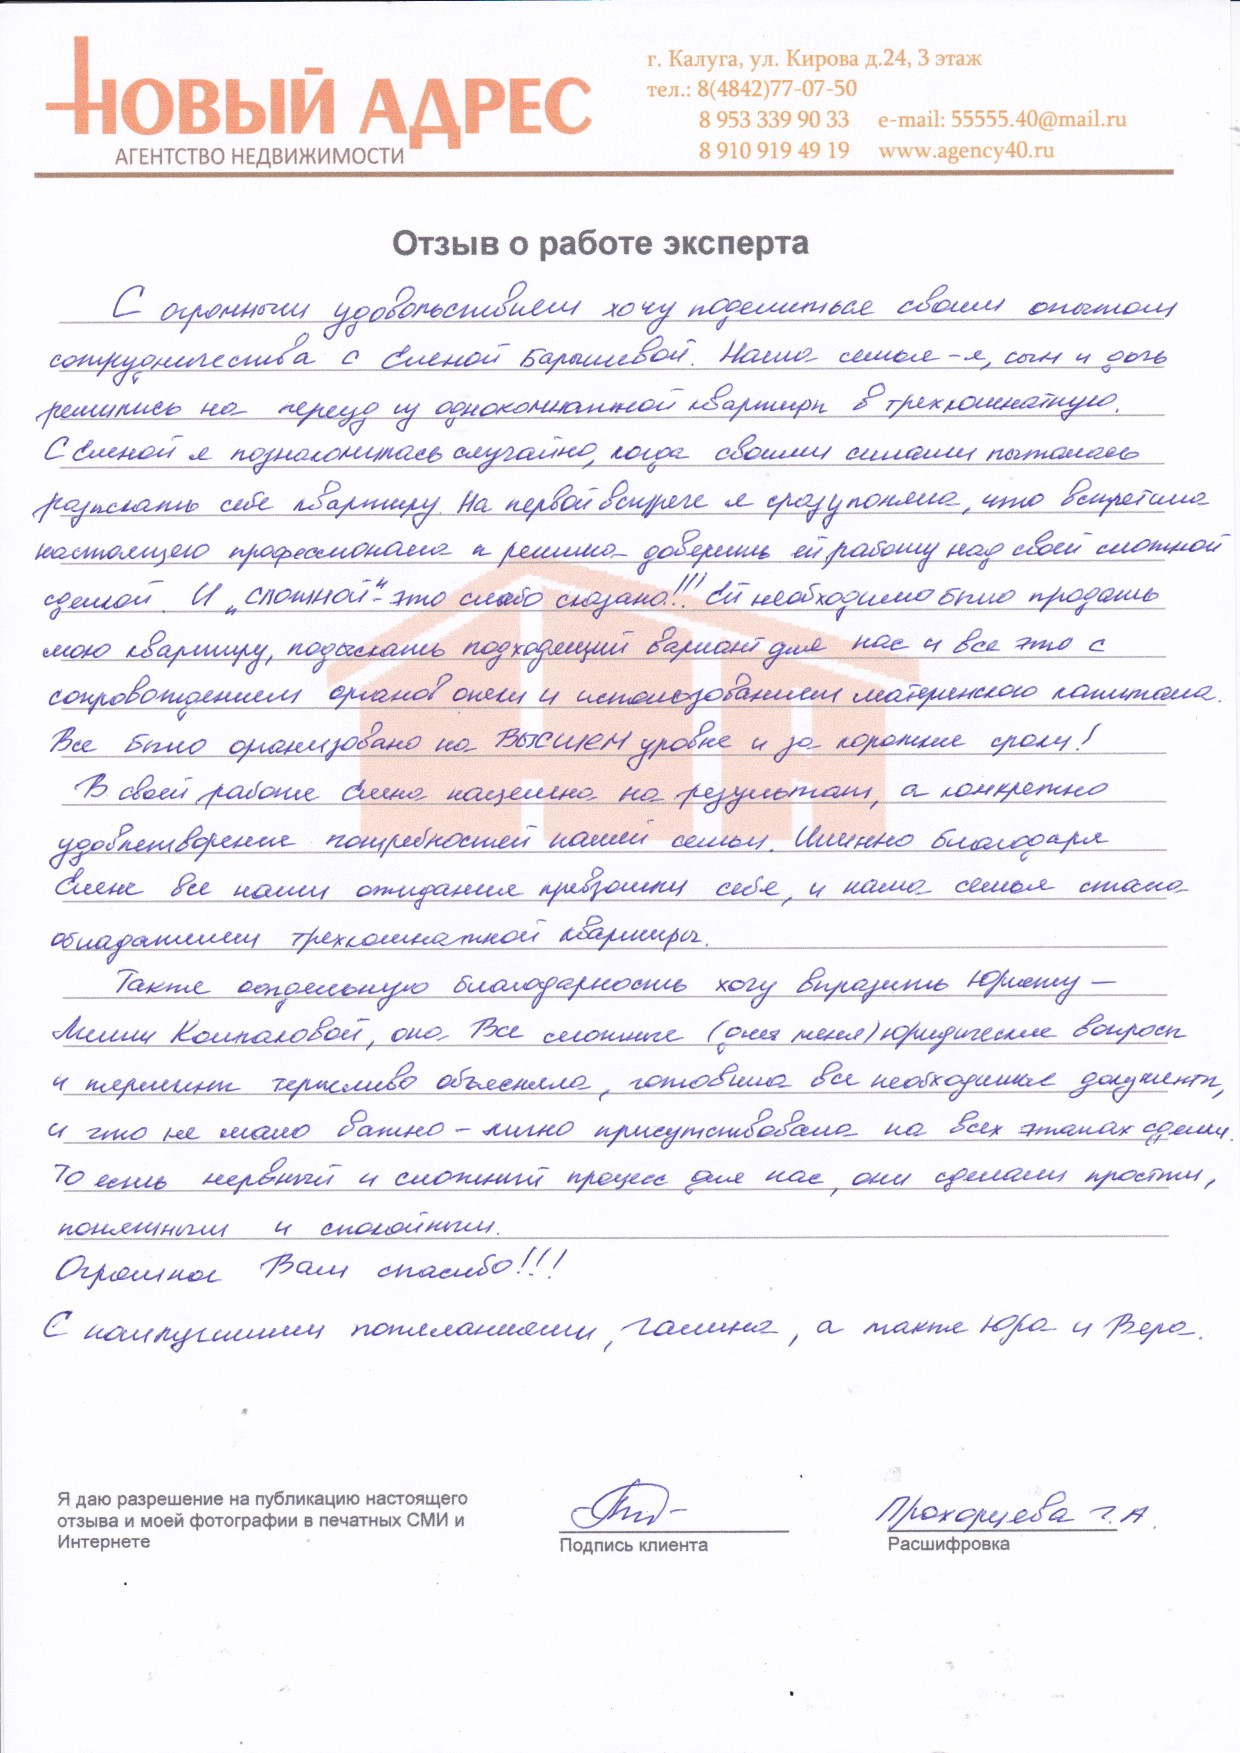 НОВЫЙ АДРЕС
АГЕНТСТВО НЕДВИЖИМОСТИ
г. Калуга, ул. Кирова д.24, 3 этаж
тел.: 8(4842)77-07-50
8 953 339 90 33 e-mail: 55555.40@mail.ru
8 910 919 49 19 www.agency40.ru
Отзыв о работе эксперта
С огромным удовольствием хочу поделиться своим опытом
сотрудничества с Еленой Барышевой. Наша семья - я, сын и дочь
решились на переезд из однокомнатной квартиры в трехкомнатную.
С Еленой я познакомилась случайно, когда своими силами пыталась
разыскать себе квартиру. На первой встрече я сразу поняла, что встретила
настоящего профессионала и решила доверить ей работу над своей сложной
сделкой. И „сложной" - это слабо сказано!!! Ей необходимо было продать
мою квартиру, подыскать подходящий вариант для нас и все это с
сопровождением органов опеки и использованием материнского капитала.
Все было организовано на ВЫСШЕМ уровне и за короткие сроки!
В своей работе Елена нацелена на результат, а конкретно
удовлетворение потребностей нашей семьи. Именно благодаря
Елене все наши ожидания превзошли себя, и наша семья стала
обладателем трехкомнатной квартиры.
Также отдельную благодарность хочу выразить Юристу -
Колпаковой, она все сложные (для меня) юридические вопросы
и термины терпеливо объясняла, готовила все необходимые документы,
и что не мало важно - лично присутствовала на всех этапах сделки.
То есть нервный и сложный процесс для нас, они сделали простым,
понятным и спокойным.
Огромное Вам спасибо!!!
С наилучшими пожеланиями, Галина, а также Юра и Вера.
Я даю разрешение на публикацию настоящего
отзыва и моей фотографии в печатных СМИ и
Интернете
Подпись клиента
Прохорцева Г.А.
Расшифровка